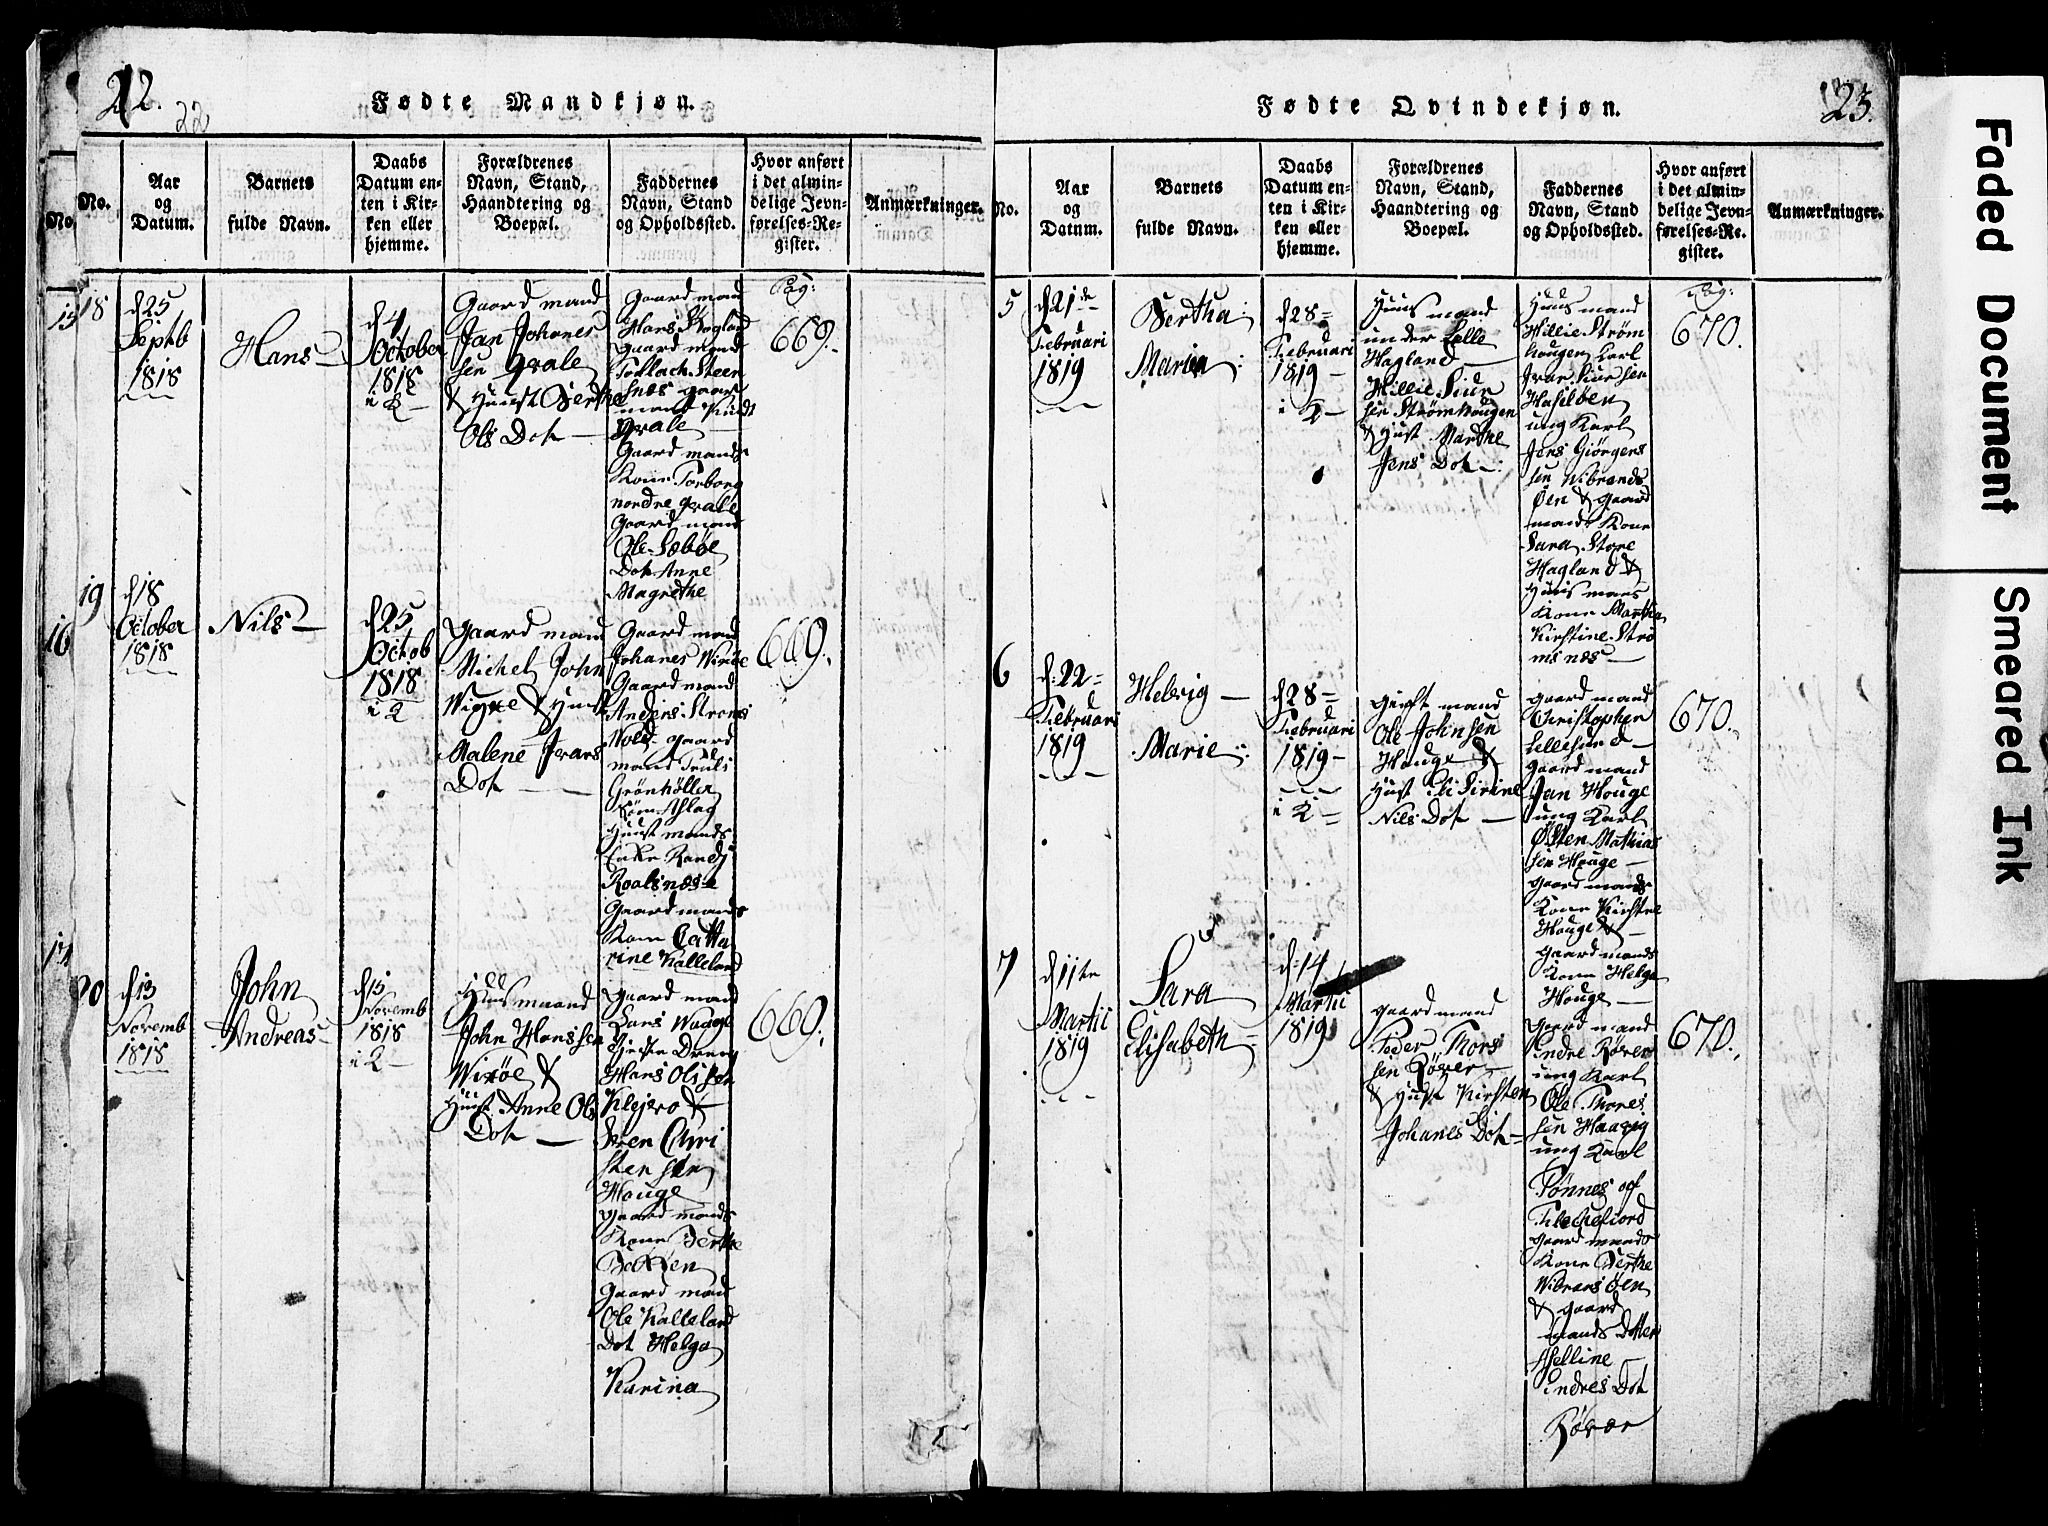 22.
22
Fødte Mandkjøn.
No.
No.
Aar
og
Datum.
Barnets
fulde Navn.
Daabs
Datum en-
ten i Kir-
ken eller
hjemme.
Forældrenes
Navn, Stand,
Haandtering og
Boepæl.
Faddernes
Navn, Stand
og Opholdssted.
Hvor anført
i det almin-
delige Jevn-
førelses-Re-
gister.
Anmærkninger.
18
d 25
Septb
1818
Hans
d 4
October
1818
i K
Gaard mand
Jan Johanes
sen Qvale
& Hust Berthe
Ols Dot
Gaard mand
Hans
Gaard mand
Steen
snæs gaar
mand Knudt
Qvale
Gaard mands
Kone Torborg
nordre Qvale
Gaard mand
Ole Sebøe
Dot Anne
Magrethe
Pag:
669.
19
16
d 18
October
1818
Nils
d 25
Octob
1818
i K
Gaard mand
Michel John
& Hust
Malene Ivars
Dot
Gaard mand
Johanes Wixøe
Gaard mand
Anders
gaard
mand Truls
Grönhöller
Aslag
Huust mands
Enke Randj
Roalsnæs
Gaard mands
Kone Catta
rine Kalleland
669.
20
d 13
Novemb
1818
John
Andreas
d 15
Novemb
1818
i K
Huus maand
John Hanssen
Wixøe &
Hust Anne Ols
Dot
Gaard mand
Lars Waage
Dreng
Hans Olssen
Klejero &
Sven Chri
stensen
Houge
Gaard mands
Kone Berthe
Bakken
Gaard man
Ole Kalleland
Dot Helga
Karina
669.
23.
Fødte Qvindekjøn.
No.
Aar
og
Datum.
Barnets
fulde Navn.
Daabs
Datum en-
ten i Kir-
ken eller
hjemme.
Forældrenes
Navn, Stand,
Haandtering og
Boepæl.
Faddernes
Navn, Stand
og Opholdssted.
Hvor anført
i det almin-
delige Jevn-
førelses-Re-
gister.
Anmærkninger.
5
d 21de
Februari
1819
Bertha
Maria
d 28
Februari
1819
i K
Huus mand
under Lille
Hagland
Willie Siur
sen Strømhougen
& Hust Marthe
Jens Dot
Huus mand
Willie Strøm
hougen Karl
Ivar Siursen
Haseløen
ung Karl
Jens Giörgens
sen Wibrands
Øen & gaard
mands Kone
Sara Store
Hagland &
Huus mans
Kone Martha
Kirstine Strö
msnæs
Pag:
670.
6
d: 22
Februari
1819
Helvig
Marie
d 28
Februari
1819
i K
Gift mand
Ole Johnsen
Houge &
Hust Eli Sirine
Nils Dot
Gaard mand
Christopher
Lillesund
Gaard mand
Jan Houge
ung Karl
Østen Mathias
sen Houge
gaard mands
Kone Kirstne
Houge &
Gaard mands
Kone Helga
Houge
670.
7
d 11te
Martii
1819
Sara
Elisabeth
d: 14
Martii
1819
Gaard mand
Peder Thors
sen Röver
& Hust Kirsten
Johanes Dot
Gaard mand
Endre Röver
ung Karl
Ole Thores
sen Haaveg
ung Karl
Tönnes of
Flechefiord
gaard mands
Kone Berthe
Wibransøen
& gaard
mands Dotter
Aselline
Endres Dot
Röver
670.
Faded Document
Smeared Ink